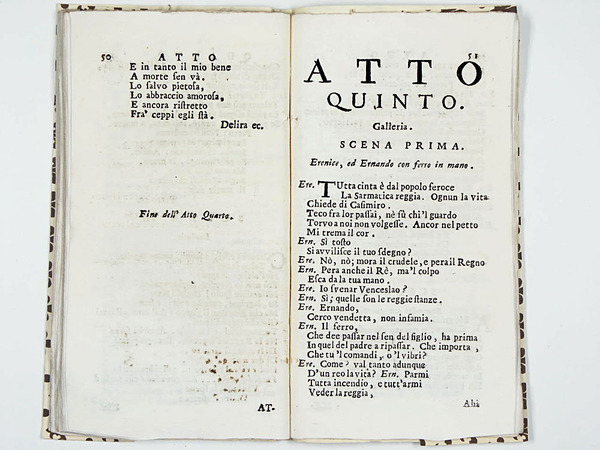 50 ATTO
E in tanto il mio bene
A morte ſen và.
Lo ſalvo pietoſa,
Lo abbraccio amoroſa,
E ancora riſtretto
Fra' ceppi egli ſtà.
Delira ec.
Fine dell' Atto Quarto.
AT-
51
ATTO
QUINTO.
Galleria.
SCENA PRIMA.
Erenice, ed Ernando con ferro in mano.
Ere. TUtta cinta è dal popolo feroce
La Sarmatica reggia. Ognun la vita
Chiede di Caſimiro.
Teco fra lor paſſai, nè ſù chi'l guardo
Torvo a noi non volgeſſe. Ancor nel petto
Mi trema il cor.
Ern. Sì toſto
Si avviliſce il tuo ſdegno?
Ere. Nò, nò; mora il crudele, e pera il Regno
Ern. Pera anche il Rè, ma'l colpo
Eſca da la tua mano.
Ere. Io ſvenar Venceslao?
Ern. Sì; quelle ſon le reggie ſtanze.
Ere. Ernando,
Cerco vendetta, non infamia.
Ern. Il ferro,
Che dee paſſar nel ſen del figlio, ha prima
In quel del padre a ripaſſar. Che importa,
Che tu 'l comandi, o 'l vibri?
Ere. Come? val tanto adunque
D'un reo la vita? Ern. Parmi
Tutta incendio, e tutt'armi
Veder la reggia,
Ahi